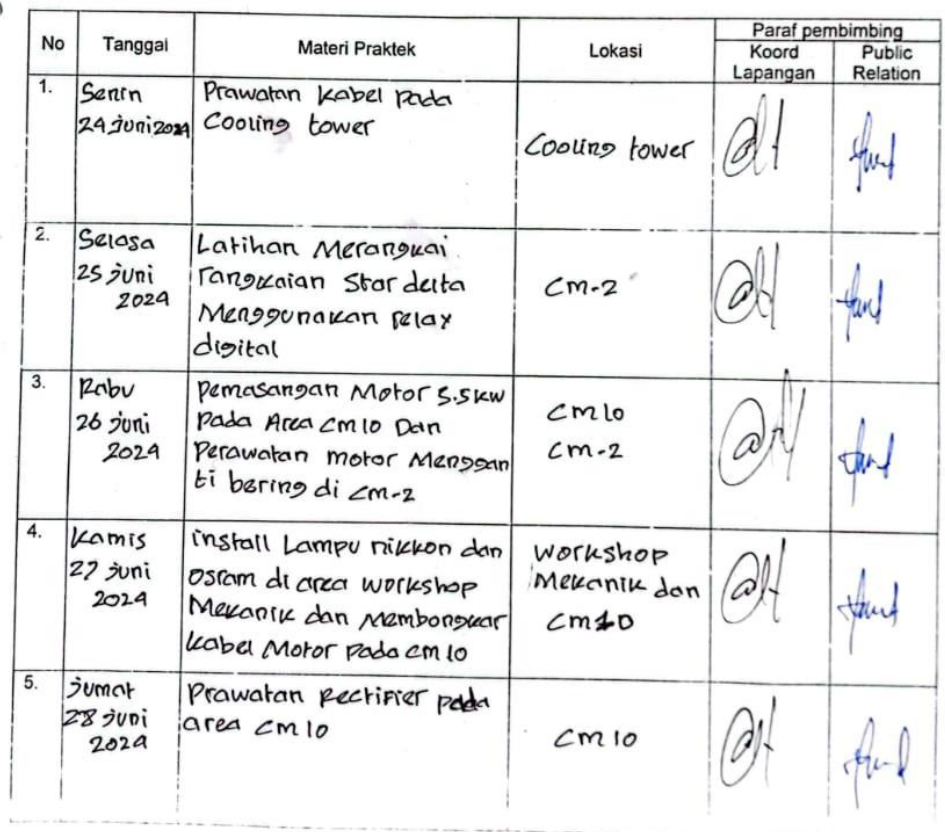 No Tanggal Materi Praktek Lokasi Paraf pembimbing
Koord Lapangan Public Relation
1. Senin
24 juni 2024
Prawatan kabel pada
Cooling tower
Cooling tower
2. Selasa
25 juni
2024
Latihan Merangkai
rangkaian Star delta
Menggunakan relax
digital
cm-2
3. Rabu
26 juni
2024
pemasangan Motor 5.5 kw
Pada Area cm 10 Dan
Perawatan motor Menggan
ti bering di cm-2
cm 10
cm-2
4. Kamis
27 juni
2024
install Lampu nikkon dan
osram di area workshop
Mekanik dan Membongkar
kabel Motor Pada cm 10
workshop
Mekanik dan
cm 10
5. jumat
28 juni
2024
Prawatan Rectifier pada
area cm 10
cm 10